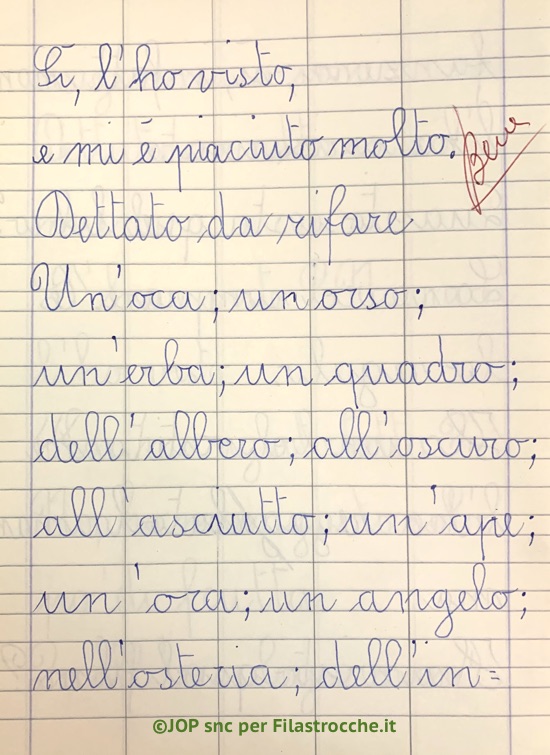 Sì, l'ho visto,
e mi è piaciuto molto. Bene
Dettato da rifare
Un'oca; un orso;
un'erba; un quadro;
dell'albero; all'oscuro;
all'asciutto; un'ape;
un'ora; un angelo;
nell'osteria; dell'in=
©JOP snc per Filastrocche.it